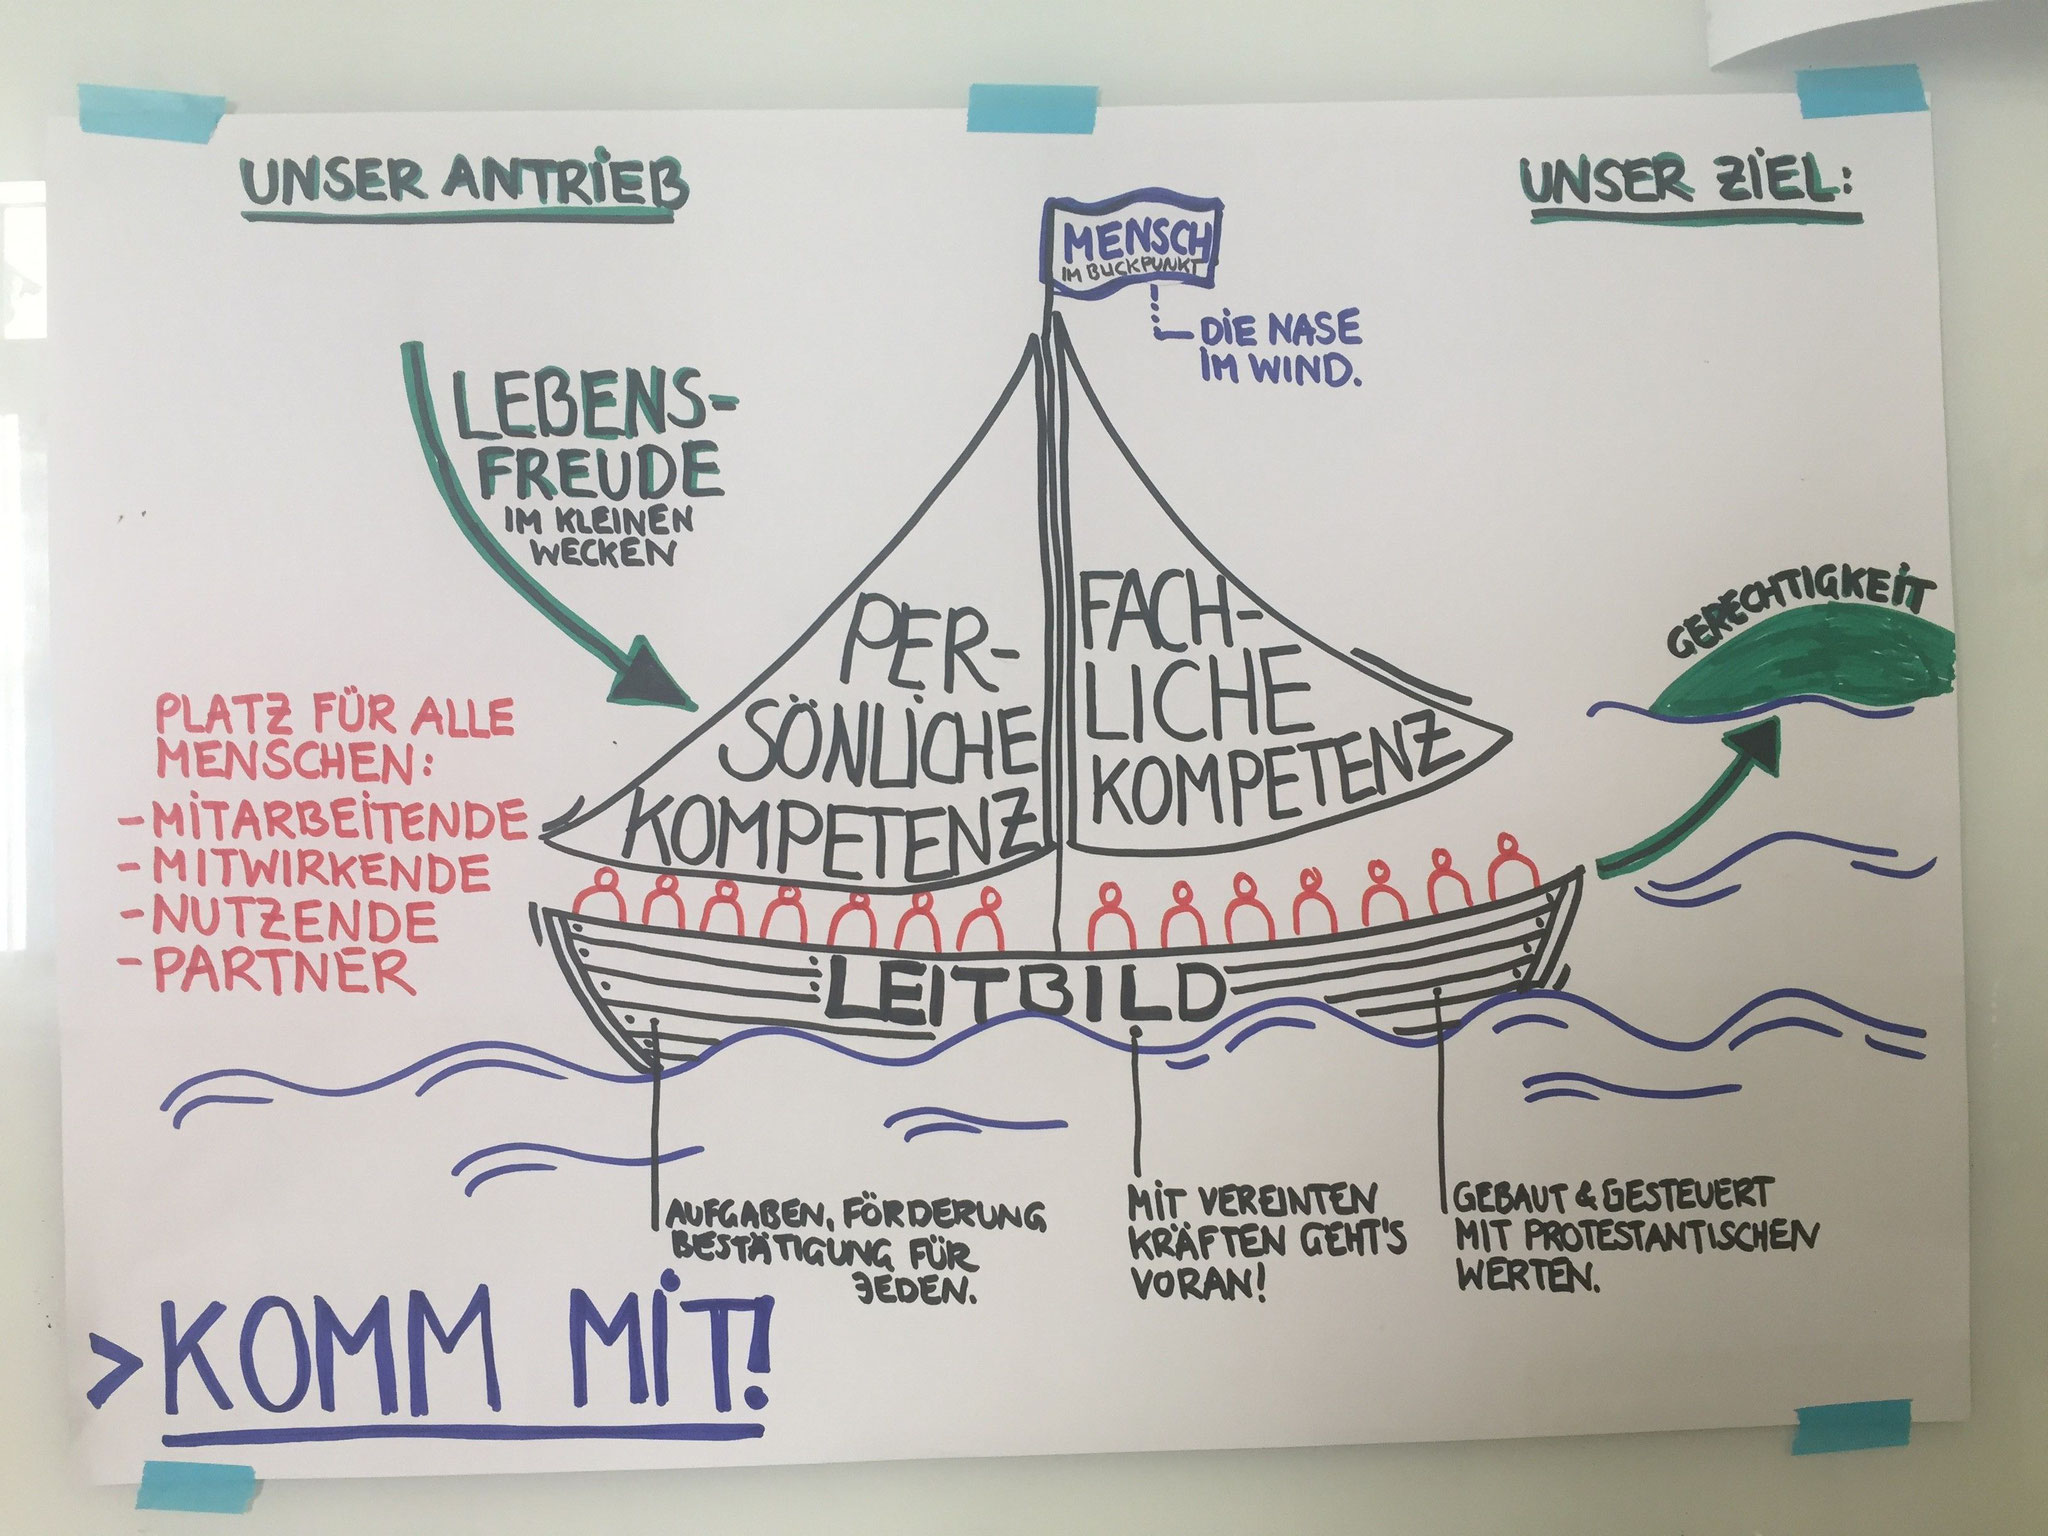 UNSER ANTRIEB
UNSER ZIEL:
MENSCH
IM BLICKPUNKT
DIE NASE
IM WIND.
LEBENS-
FREUDE
IM KLEINEN
WECKEN
PER-
SÖNLICHE
KOMPETENZ
FACH-
LICHE
KOMPETENZ
GERECHTIGKEIT
PLATZ FÜR ALLE
MENSCHEN:
- MITARBEITENDE
- MITWIRKENDE
- NUTZENDE
- PARTNER
LEITBILD
AUFGABEN, FÖRDERUNG
BESTÄTIGUNG FÜR
JEDEN.
MIT VEREINTEN
KRÄFTEN GEHT'S
VORAN!
GEBAUT & GESTEUERT
MIT PROTESTANTISCHEN
WERTEN.
> KOMM MIT!